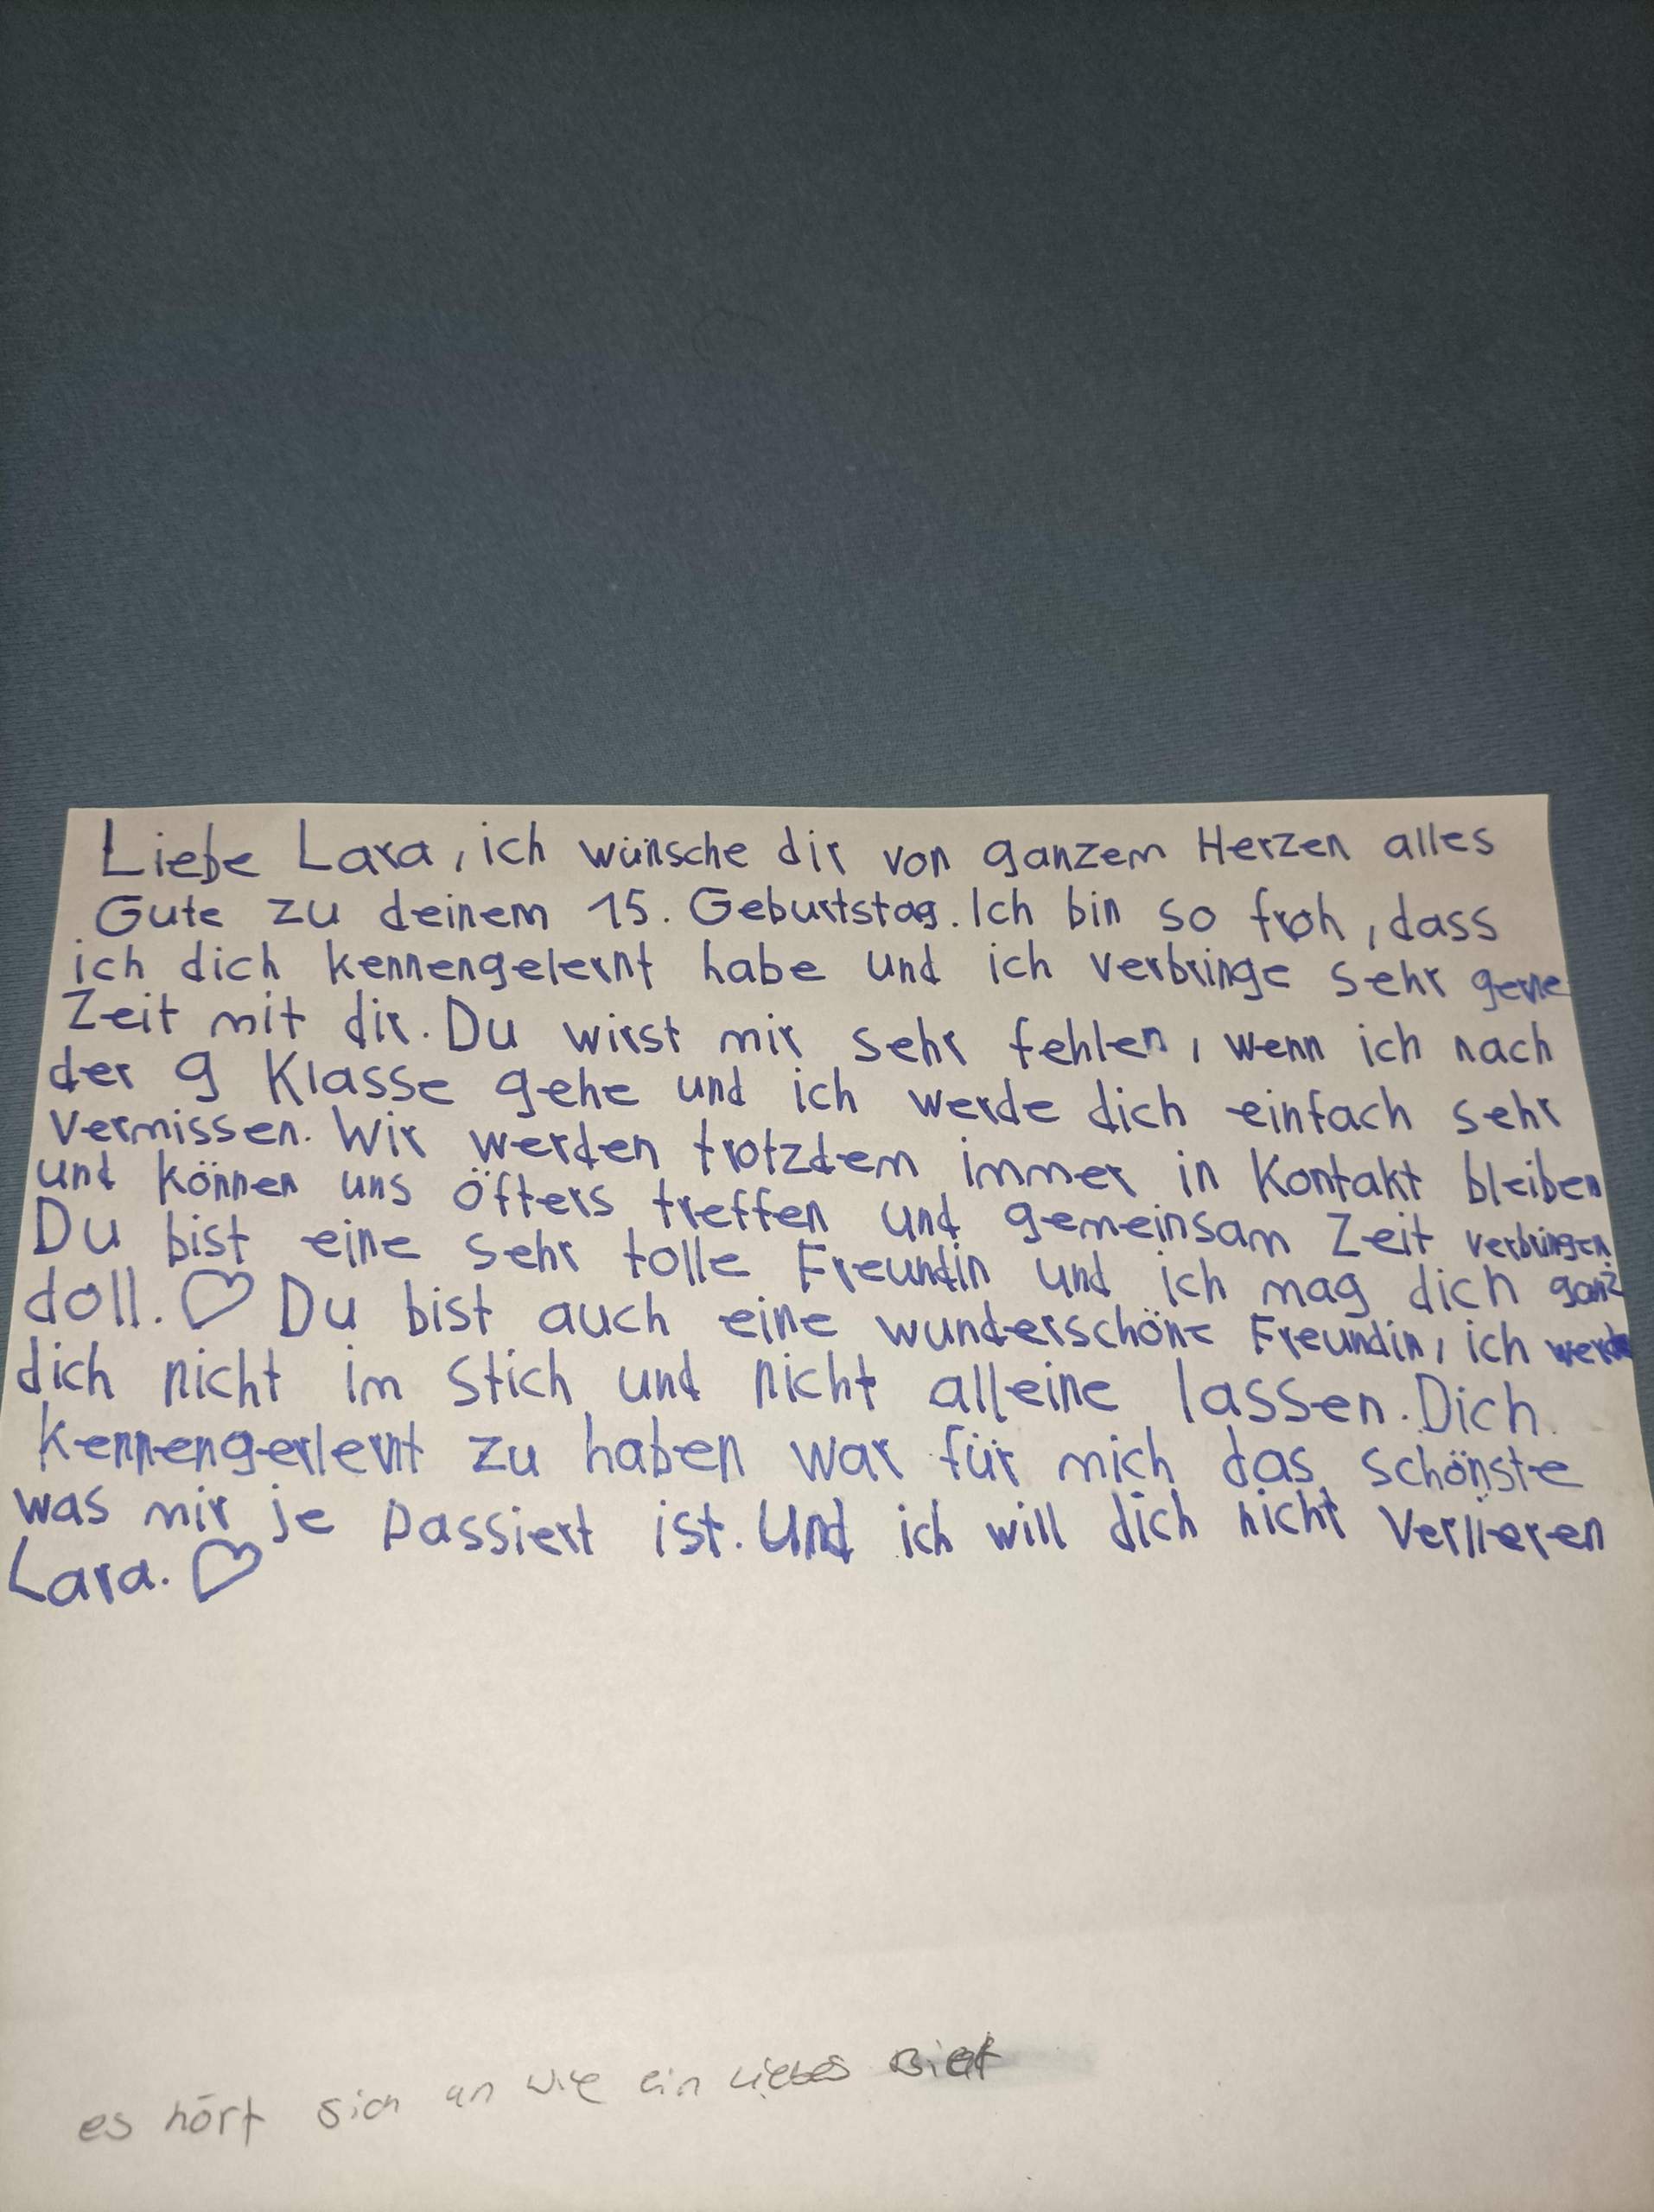 Liebe Lara, ich wünsche dir von ganzem Herzen alles
Gute zu deinem 15. Geburtstag. Ich bin so froh, dass
ich dich kennengelernt habe und ich verbringe sehr gerne
Zeit mit dir. Du wirst mir sehr fehlen, wenn ich nach
der 9 Klasse gehe und ich werde dich einfach sehr
vermissen. Wir werden trotzdem immer in Kontakt bleiben
und können uns öfters treffen und gemeinsam Zeit verbringen.
Du bist eine sehr tolle Freundin und ich mag dich ganz
doll. ♡ Du bist auch eine wunderschöne Freundin, ich werde
dich nicht im Stich und nicht alleine lassen. Dich
kennengerlernt zu haben war für mich das schönste
was mir je passiert ist. Und ich will dich nicht verlieren
Lara. ♡
es hört sich an wie ein liebes